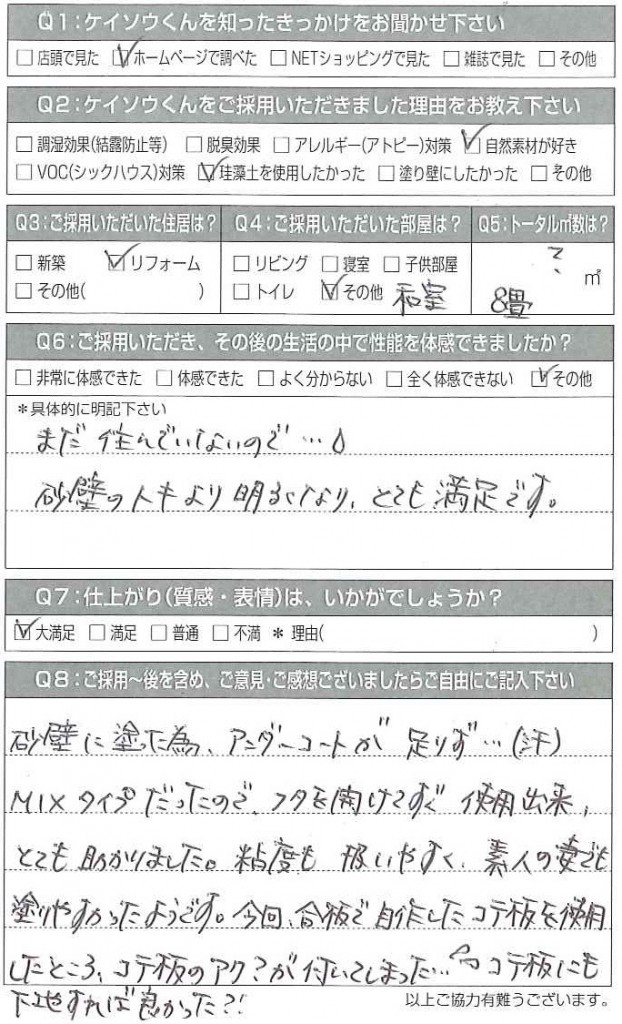 Q1:ケイソウくんを知ったきっかけをお聞かせ下さい
□店頭で見た ☑ホームページで調べた □NETショッピングで見た □雑誌で見た □その他
Q2:ケイソウくんをご採用いただきました理由をお教え下さい
□調湿効果(結露防止等) □脱臭効果 □アレルギー(アトピー)対策 ☑自然素材が好き
□VOC(シックハウス)対策 ☑珪藻土を使用したかった □塗り壁にしたかった □その他
Q3:ご採用いただいた住居は?
□新築 ☑リフォーム
□その他( )
Q4:ご採用いただいた部屋は?
□リビング □寝室 □子供部屋
□トイレ ☑その他 和室
Q5:トータル㎡数は?
? ㎡
8畳
Q6:ご採用いただき、その後の生活の中で性能を体感できましたか?
□非常に体感できた □体感できた □よく分からない □全く体感できない ☑その他
*具体的に明記下さい
まだ住んでいないので…
砂壁の時より明るくなり、とても満足です。
Q7:仕上がり(質感・表情)は、いかがでしょうか?
☑大満足 □満足 □普通 □不満 *理由( )
Q8:ご採用〜後を含め、ご意見・ご感想ございましたらご自由にご記入下さい
砂壁に塗った為、アンダーコートが足りず…(汗)
MIXタイプだったので、フタを開けてすぐ使用出来、
とても助かりました。粘度も扱いやすく、素人の妻でも
塗りやすかったようです。今回、合板で自作したコテ板を使用
したところ、コテ板のアク?が付いてしまった… コテ板にも
下地すれば良かった?!
以上ご協力有難うございます。